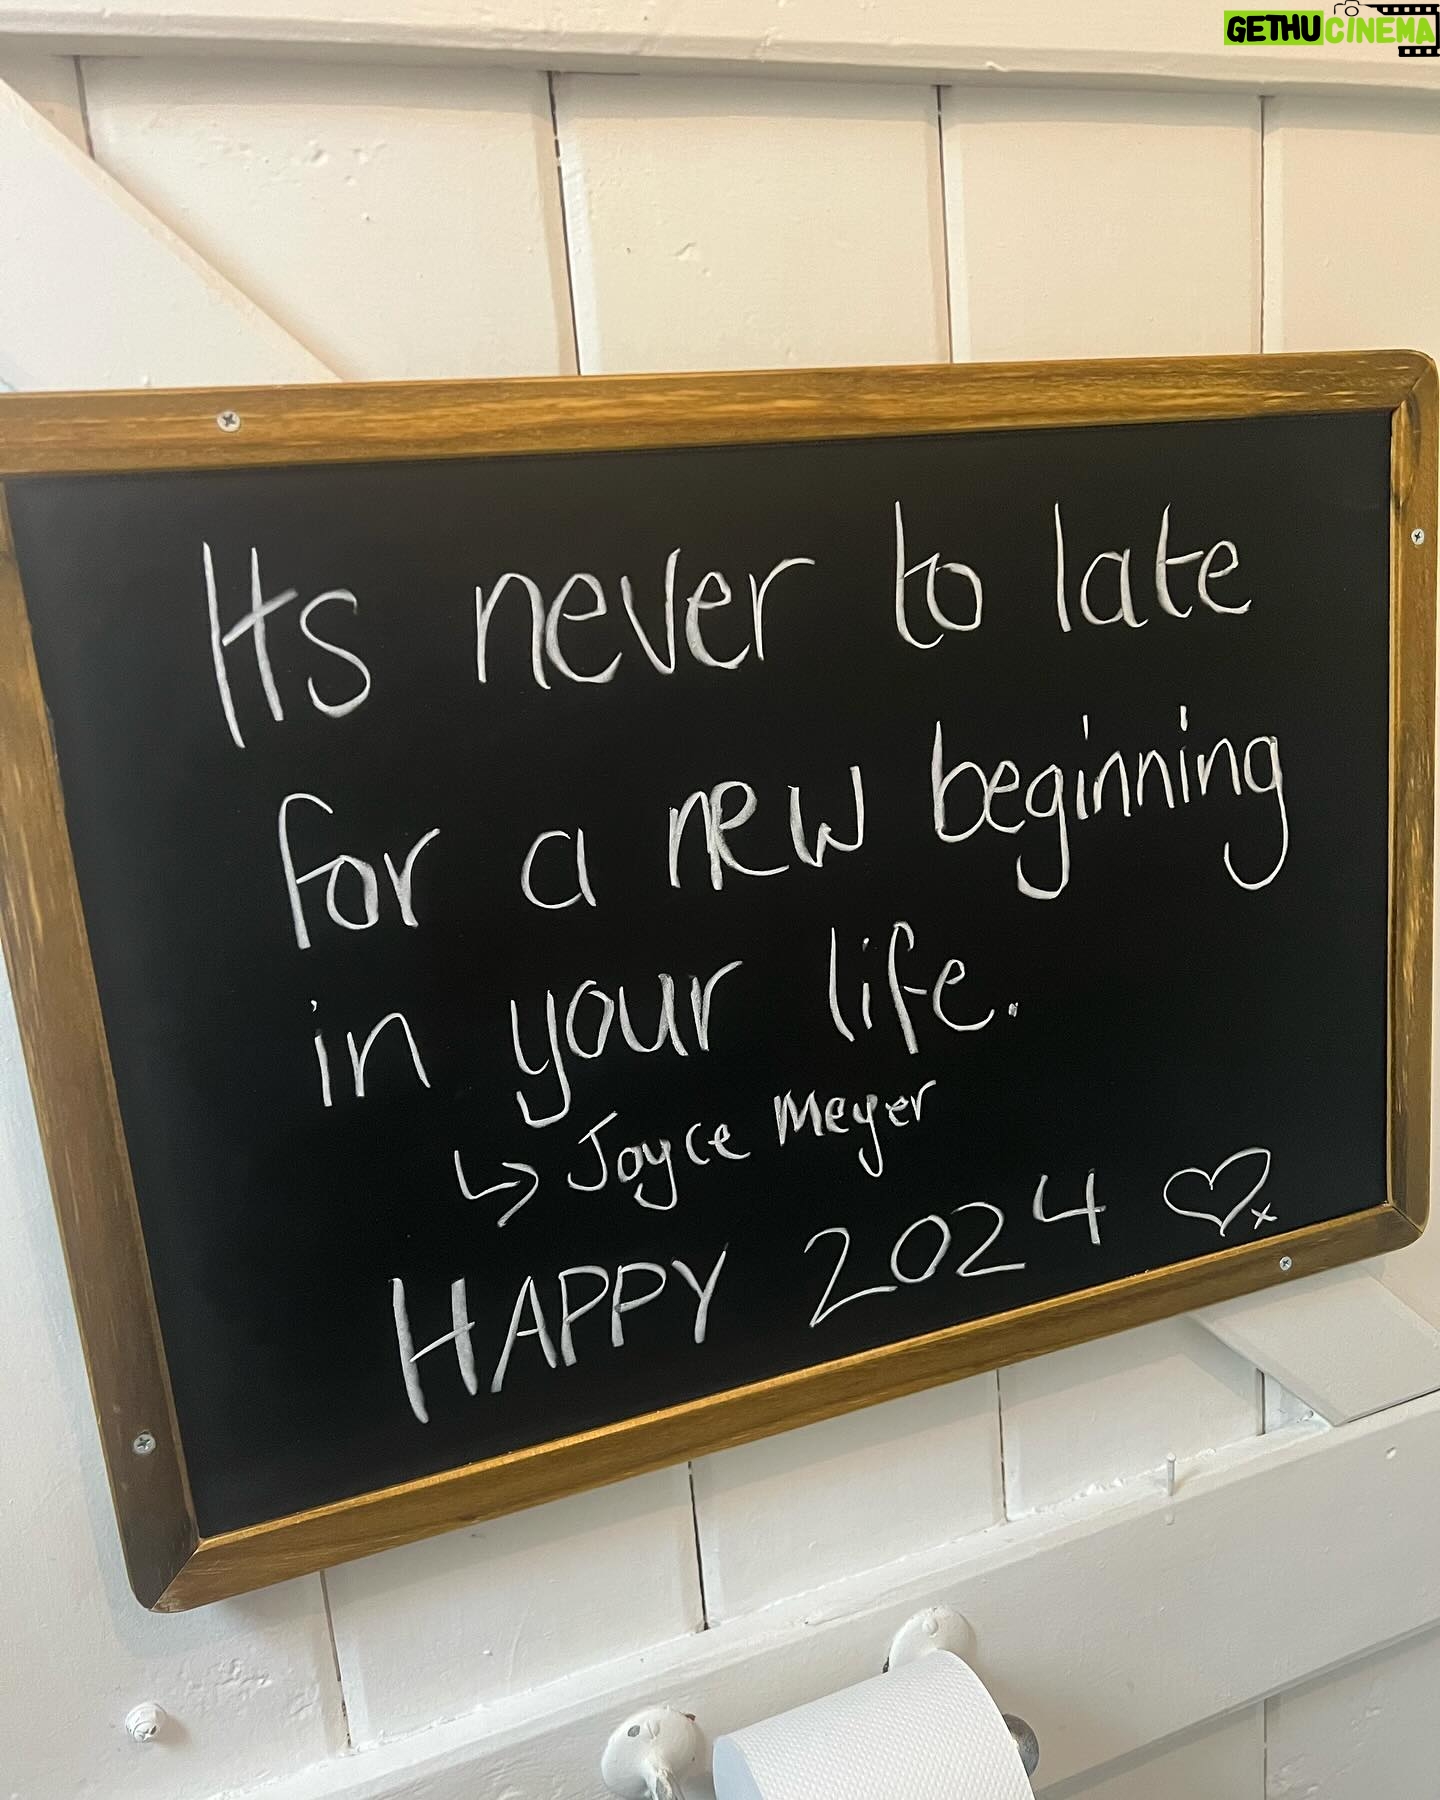 GETHUCINEMA
Its never to late
for a new beginning
in your life.
↳ Joyce Meyer
HAPPY 2024 ♡x